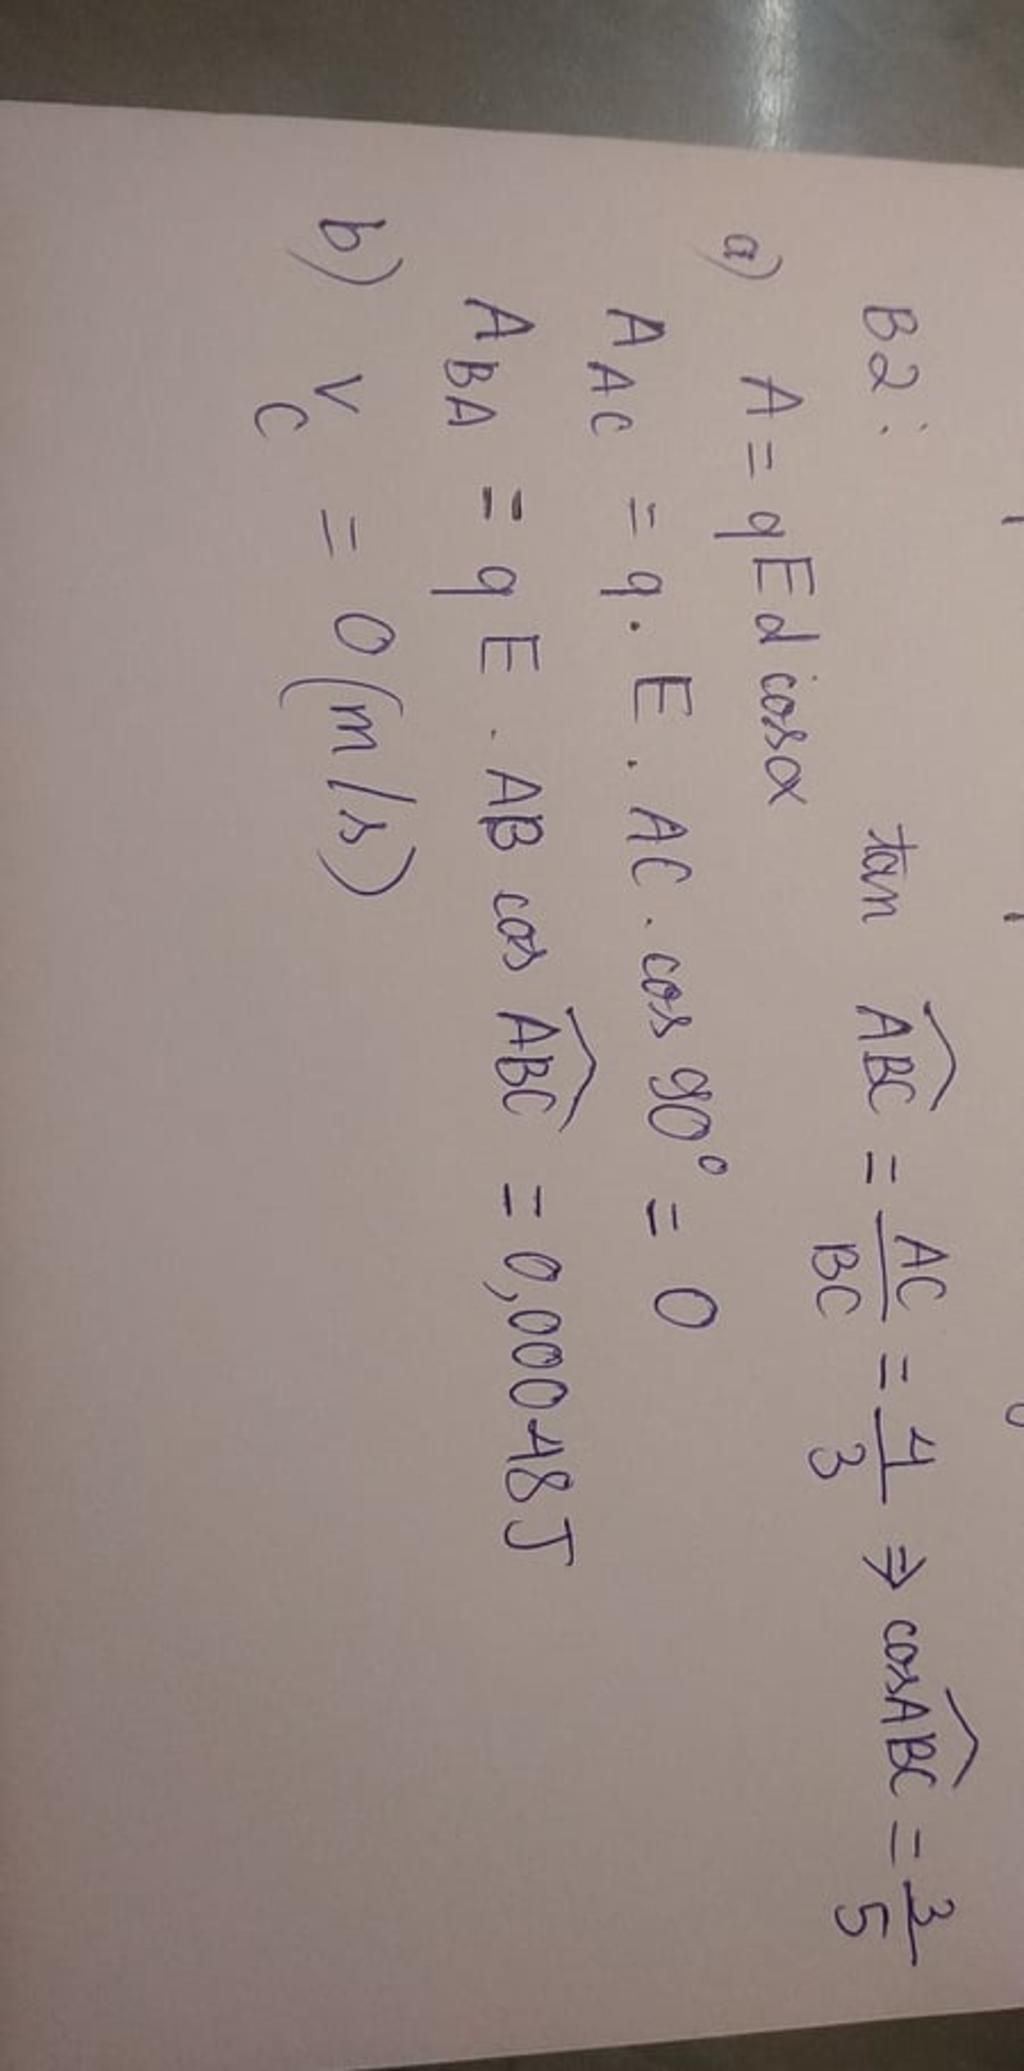 B2: tan ABC = AC/BC = 4/3 ⇒ cos ABC = 3/5
a) A = qEd cosα
A_AC = q. E. AC. cos 90° = 0
A_BA = qE. AB cos ABC = 0,00048J
b) v_C = 0 (m/s)